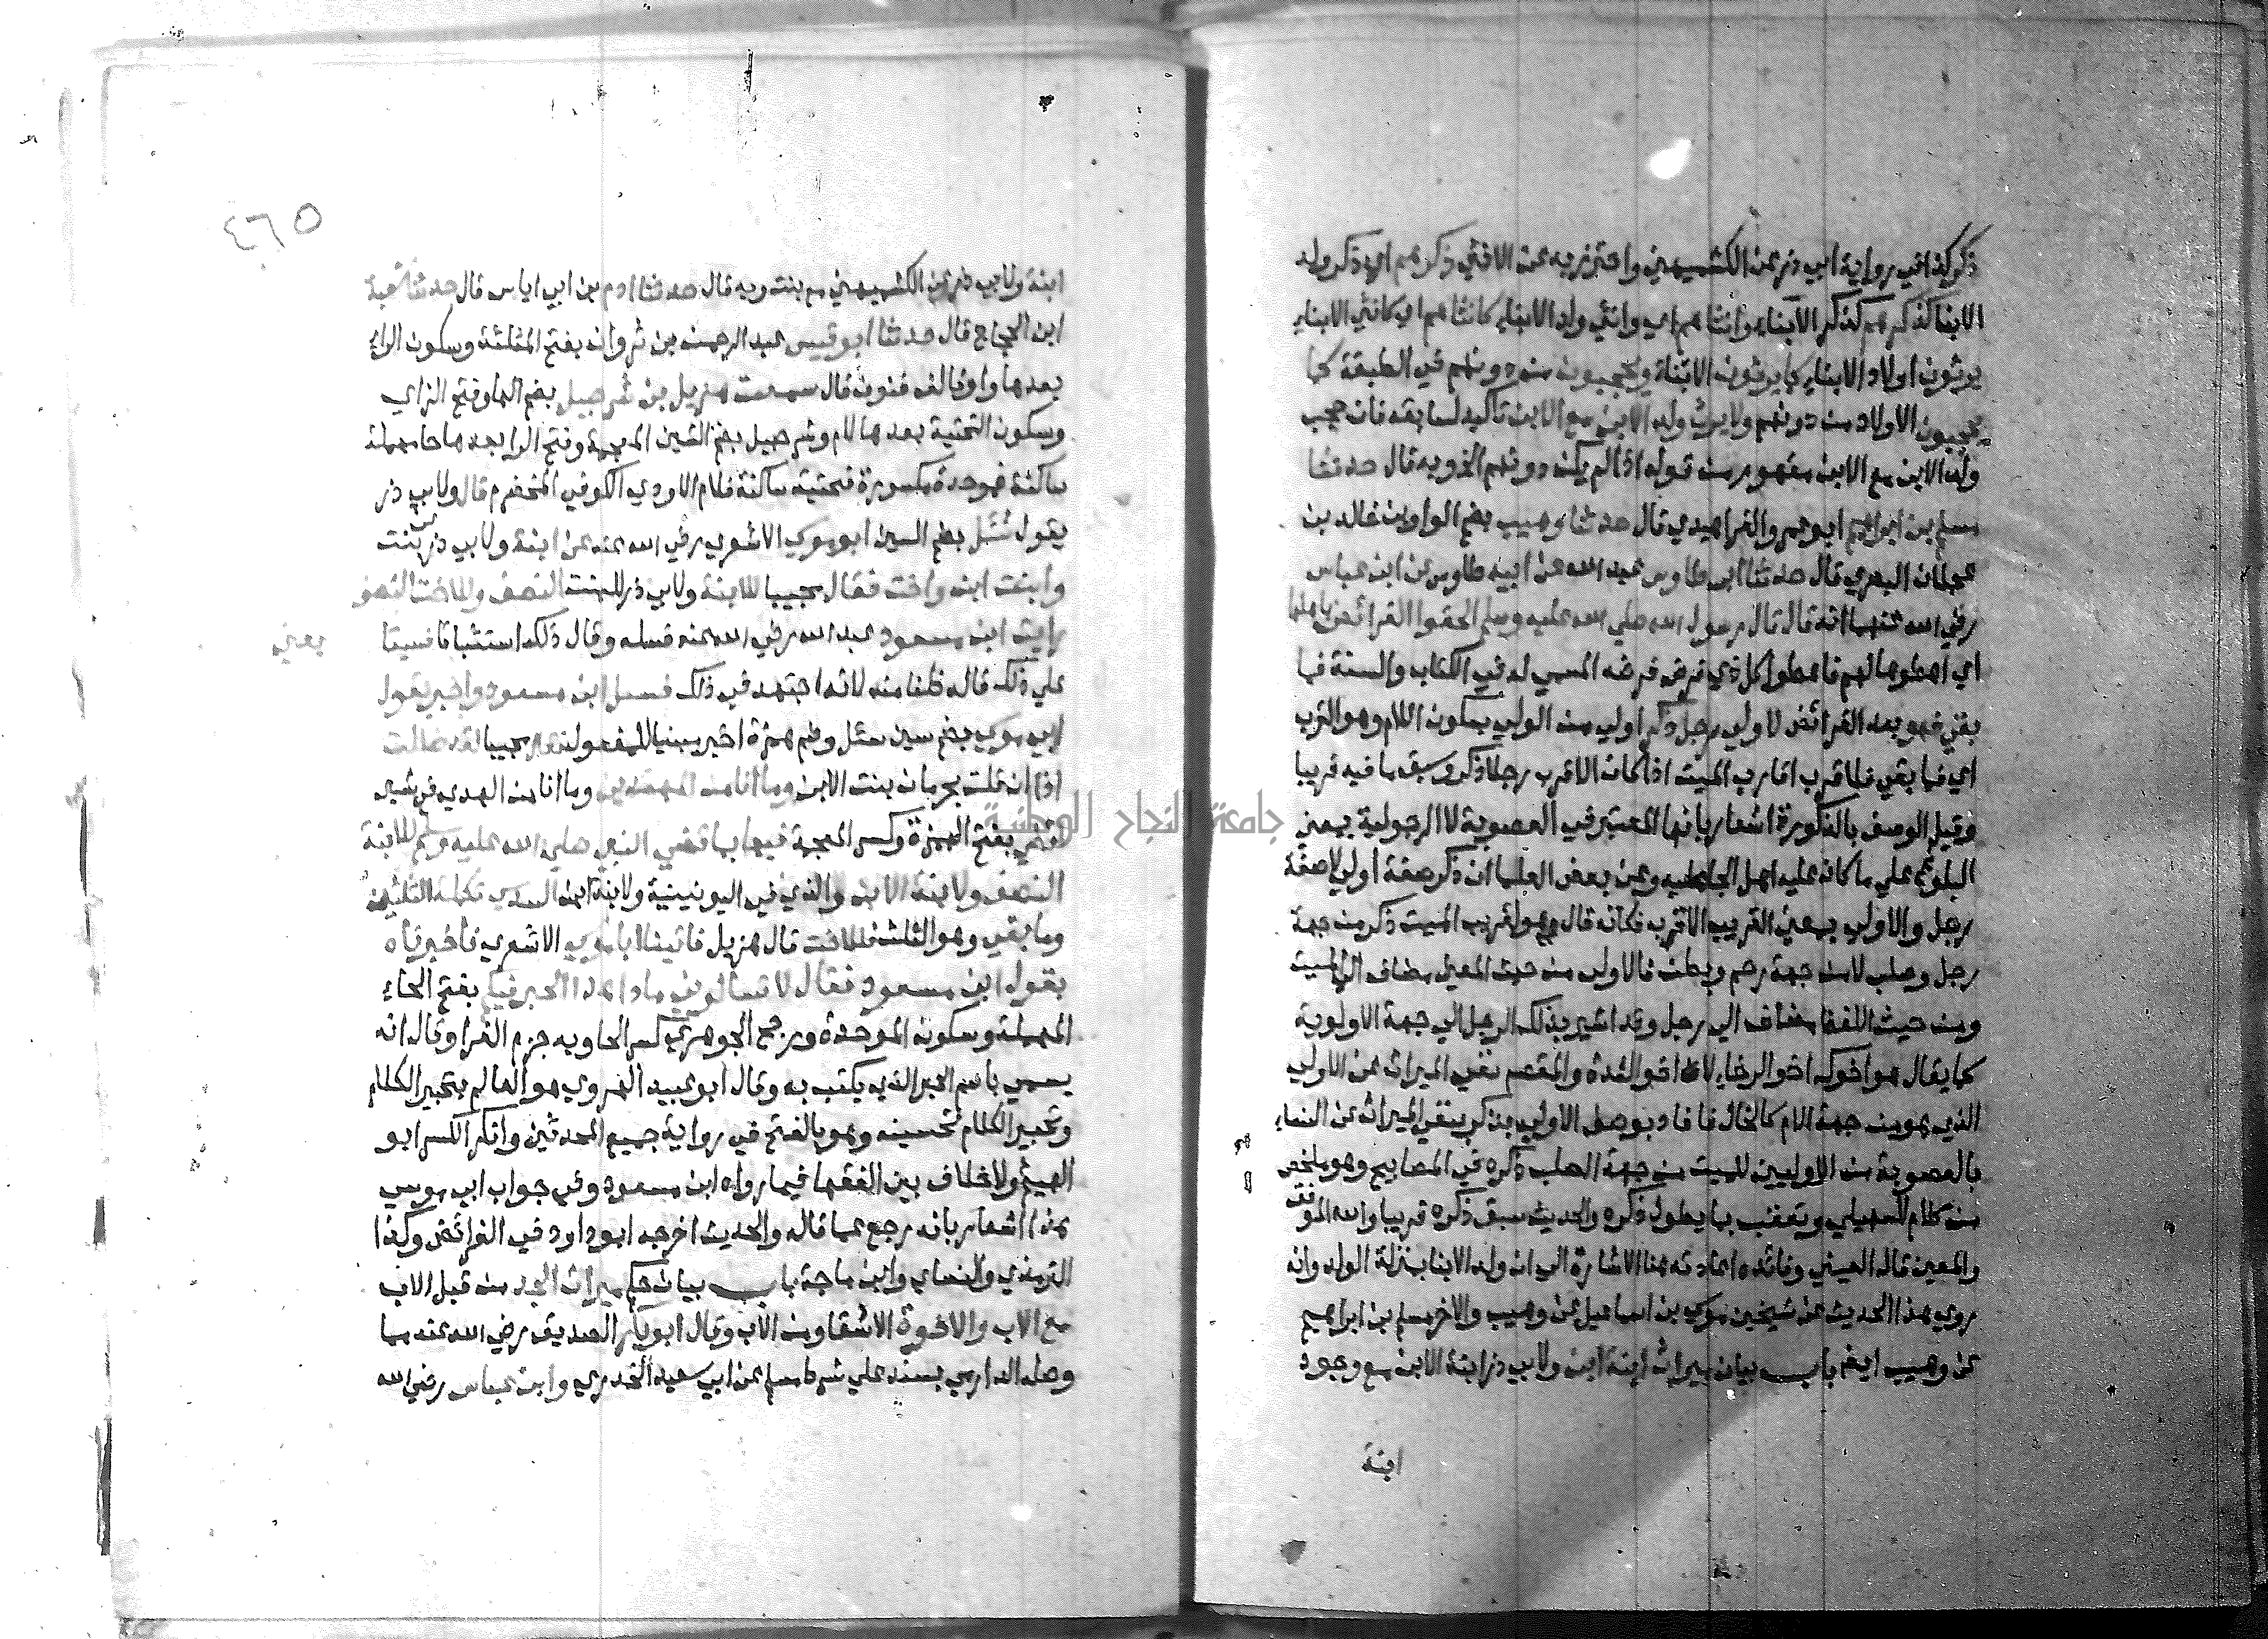 ذكر كذا في رواية ابي ذر عن الكشميهني واحترز به عن الانثي ذكرهم اي ذكر ولد
الابنا كذكرهم كذكر الابناء وانثاهم اي وانثي ولد الابناء كانثاهم اي كانثي الابناء
يرثون اولاد الابناء كما يرثون الابناء ويحجبون من دونهم في الطبقة كما
يحجبون الاولاد من دونهم ولا يرث ولد الابن مع الابن تاكيد لسابقه فان حجب
ولد الابن مع الابن مفهوم من قوله اذا لم يكن دونهم الخ وبه قال حدثنا
مسلم بن ابراهيم ابو عمرو الفراهيدي قال حدثنا وهيب بضم الواو بن خالد بن
عجلان البصري قال حدثنا ابن طاوس عبد الله عن ابيه طاوس عن ابن عباس
رضي الله عنهما انه قال قال رسول الله صلي الله عليه وسلم الحقوا الفرائض باهلها
اي اعطوها لهم فاعطوا كل ذي فرض فرضه المسمي له في الكتاب والسنة فما
بقي فهو بعد الفرائض لاولي رجل ذكر اولي من الولي بسكون اللام وهو القرب
اي فما بقي فلاقرب اقارب الميت اذا كان الاقرب رجلا ذكر وسبق ما فيه قريبا
وقيل الوصف بالذكورة اشعار بانها المعتبر في العصوبة لا الرجولية بمعني
البلوغ علي ما كان عليه اهل الجاهلية وعن بعض العلما ان ذكر صفة اولي لا صفة
رجل والاولي بمعني القريب الاقرب فكانه قال هو لقريب الميت ذكر من جهة
رجل وصلب لا من جهة رحم وبطن فالاولي من حيث المعني مضاف الي الميت
ومن حيث اللفظ مضاف الي رجل وقد اشير بذلك الرجل الي جهة الاولوية
كما يقال هو اخوك اخو الرخاء لا اخو الشدة والمقصد نفي الميراث عن الاولي
الذي هو من جهة الام كالخال فافاد بوصف الاولي بذكر نفي الميراث عن النساء
بالعصوبة من الاوليين للميت من جهة الصلب ذكره في المصابيح وهو ملخص
من كلام السهيلي وتعقب بما يطول ذكره والحديث سبق ذكره قريبا والله الموفق
والمعين قاله العيني وفائده اعادته هنا الاشارة الي ان ولد الابنا بمنزلة الولد وانه
روي هذا الحديث عن شيخين موسي بن اسماعيل عن وهيب والاخر مسلم بن ابراهيم
عن وهيب ايضا باب بيان ميراث ابنة ابن ولابي ذر ابنة الابن مع وجود
ابنة
٤٦٥
ابنة ولابي ذر عن الكشميهني مع بنت وبه قال حدثنا ادم بن ابي اياس قال حدثنا شعبة
ابن الحجاج قال حدثنا ابو قيس عبد الرحمن بن ثروان بفتح المثلثة وسكون الراء
بعدها واو فالف فنون قال سمعت هزيل بن شرحبيل بضم الها وفتح الزاي
وسكون التحتية بعدها لام وشرحبيل بضم الشين المعجمة وفتح الرا بعدها حا مهملة
ساكنة فموحدة مكسورة فتحتية ساكنة فلام الاودي الكوفي المخضرم قال ولابي ذر
يقول سئل بضم السين ابو موسي الاشعري رضي الله عنه عن ابنة ولابي ذر عن بنت
وابنت ابن واخت فقال مجيبا للابنة ولابي ذر للبنت النصف وللاخت النصف
وايت ابن مسعود عبد الله رضي الله عنه فسله وقال ذلك استثباتا فسيتا
يعني
علي ذلك قاله ظنا منه لانه اجتهد في ذلك فسئل ابن مسعود واخبر بقول
ابي موسي بضم سين سئل وضم همزة اخبر مبنيا للمفعول فقال مجيبا لقد ضللت
اذا ان قلت بحرمان بنت الابن وما انا من المهتدين وما انا من الهدي في شيء
اقضي بفتح الهمزة وكسر المعجمة فيها بما قضي النبي صلي الله عليه وسلم للابنة
النصف ولابنة الابن والذي في اليونينية ولابنة ابن السدس تكملة الثلثين
وما بقي وهو الثلث فللاخت قال هزيل فاتينا ابا موسي الاشعري فاخبرناه
بقول ابن مسعود فقال لا تسالوني مادام هذا الحبر فيكم بفتح الحاء
المهملة وسكون الموحدة ورجح الجوهري كسر الحا وبه جزم الفرا وقال انه
يسمي باسم الحبر الذي يكتب به وقال ابو عبيد الهروي هو العالم بتحبير الكلام
وتحبير الكلام تحسينه وهو بالفتح في رواية جميع المحدثين وانكر الكسر ابو
الهيثم ولا خلاف بين الفقها فيما رواه ابن مسعود وفي جواب ابي موسي
هذا اشعار بانه رجع عما قاله والحديث اخرجه ابو داود في الفرائض وكذا
الترمذي والنساي وابن ماجة باب بيان حكم ميراث الجد من قبل الاب
مع الاب والاخوة الاشقا ومن الاب وقال ابو بكر الصديق رضي الله عنه مما
وصله الدارمي بسند علي شرط مسلم عن ابي سعيد الخدري وابن عباس رضي الله
جامعة النجاح الوطنية